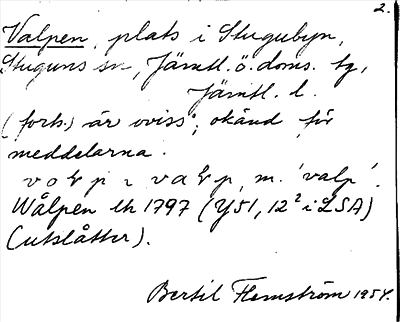 2.
Valpen, plats i Stugubyn,
Stuguns sn, Jämtl. ö. doms. tg,
Jämtl. l.
(forts.) är oviss; okänd för
meddelarna.
valp, m. 'valp'.
Wålpen lh 1797 (Y51, 12² i LSA)
(utslåtter).
Bertil Flemström 1954.